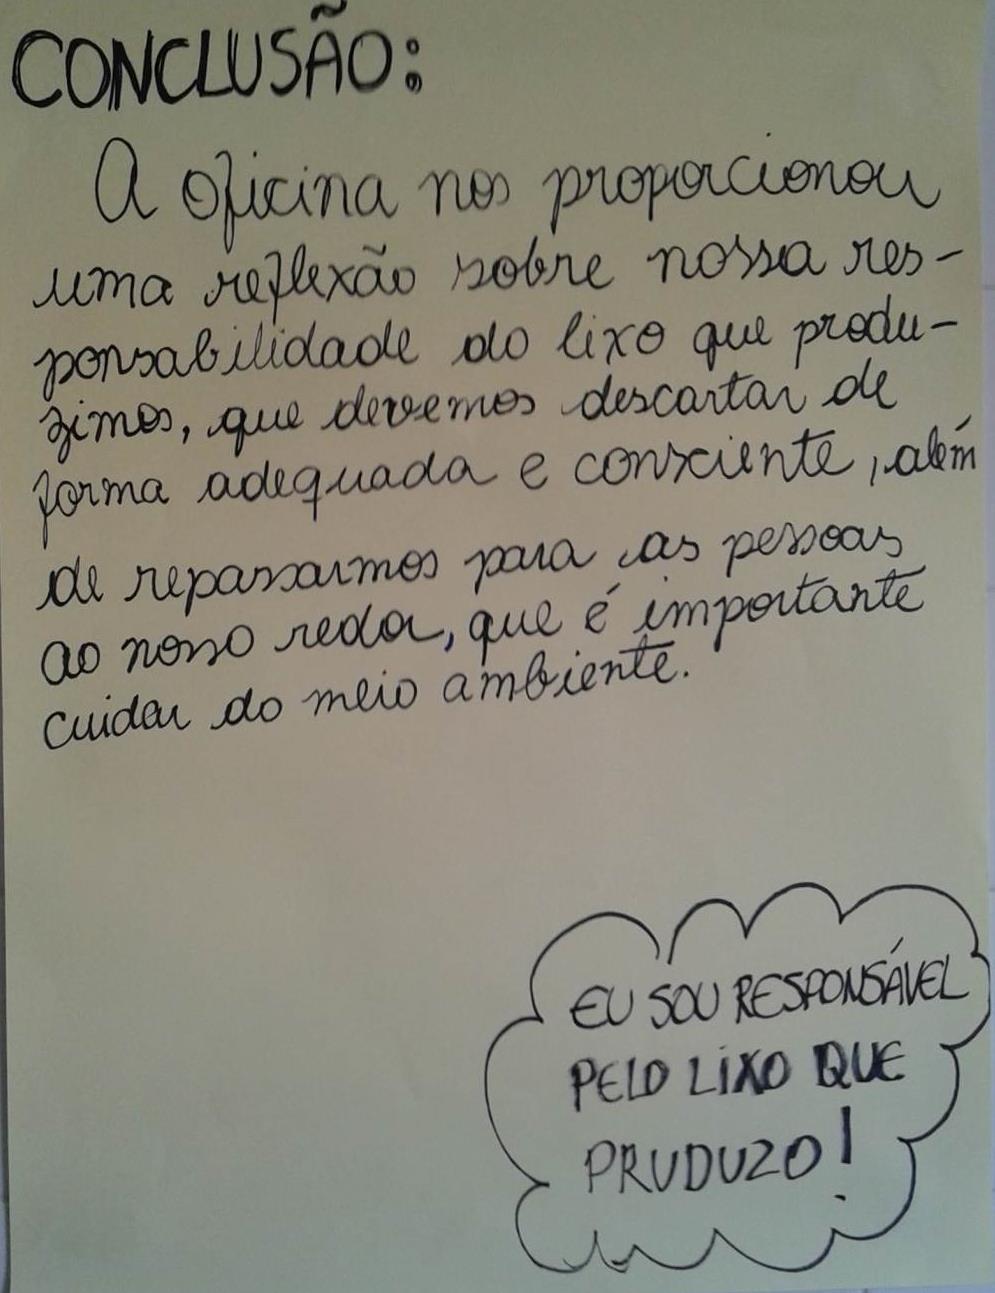 CONCLUSÃO:
A oficina nos proporcionou
uma reflexão sobre nossa res-
ponsabilidade do lixo que produ-
zimos, que devemos descartar de
forma adequada e consciente, além
de repassarmos para as pessoas
ao nosso redor, que é importante
cuidar do meio ambiente.
EU SOU RESPONSÁVEL
PELO LIXO QUE
PRUDUZO!